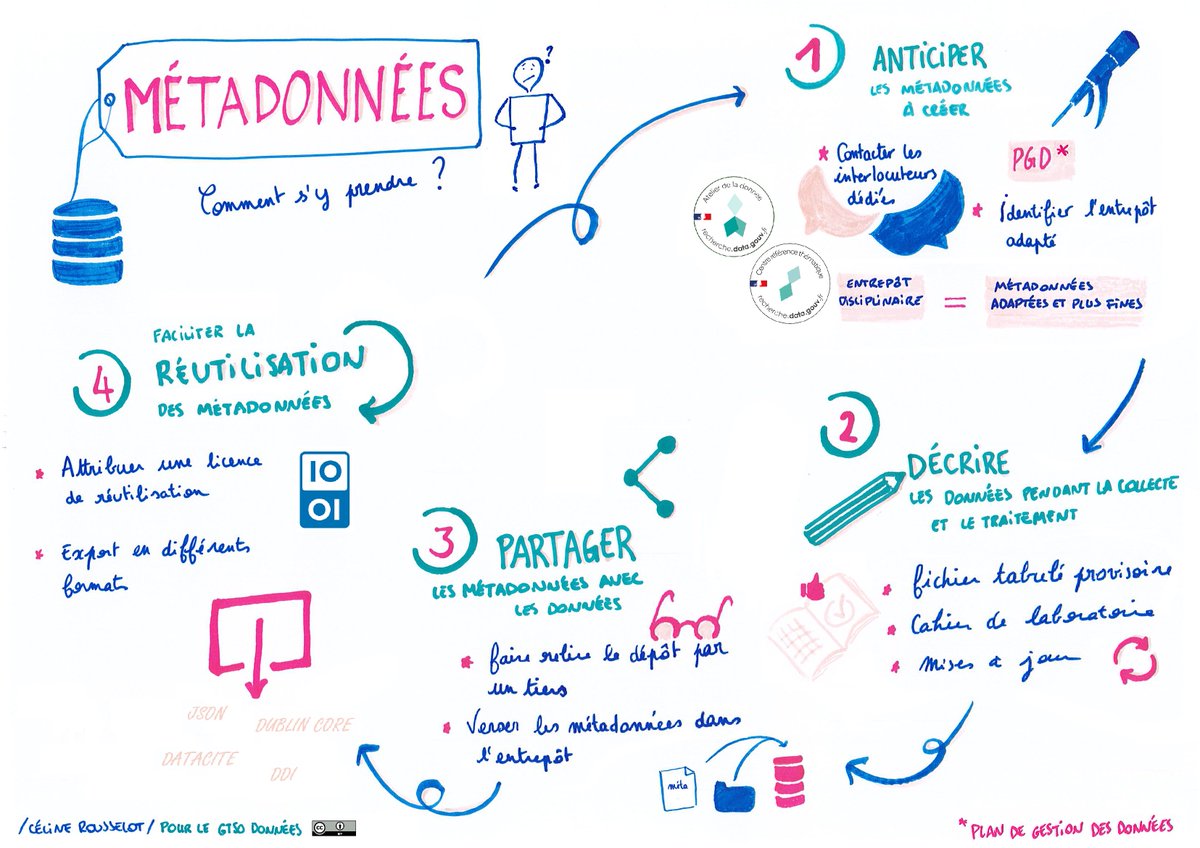 MÉTADONNÉES
Comment s'y prendre ?
?
1
ANTICIPER
LES MÉTADONNÉES
À CRÉER
* Contacter les
interlocuteurs
dédiés
PGD*
* Identifier l'entrepôt
adapté
Atelier de la donnée
recherche.data.gouv.fr
Centre référence thématique
recherche.data.gouv.fr
ENTREPÔT
DISCIPLINAIRE
=
MÉTADONNÉES
ADAPTÉES ET PLUS FINES
2
DÉCRIRE
LES DONNÉES PENDANT LA COLLECTE
ET LE TRAITEMENT
* fichier tabulé provisoire
* Cahier de laboratoire
* mises à jour
3
PARTAGER
LES MÉTADONNÉES AVEC
LES DONNÉES
* faire relire le dépôt par
un tiers
* Verser les métadonnées dans
l'entrepôt
méta
4
FACILITER LA
RÉUTILISATION
DES MÉTADONNÉES
* Attribuer une licence
de réutilisation
IO
OI
* Export en différents
formats
JSON
DUBLIN CORE
DATACITE
DDI
/CÉLINE ROUSSELOT/ POUR LE GTSO DONNÉES
*PLAN DE GESTION DES DONNÉES